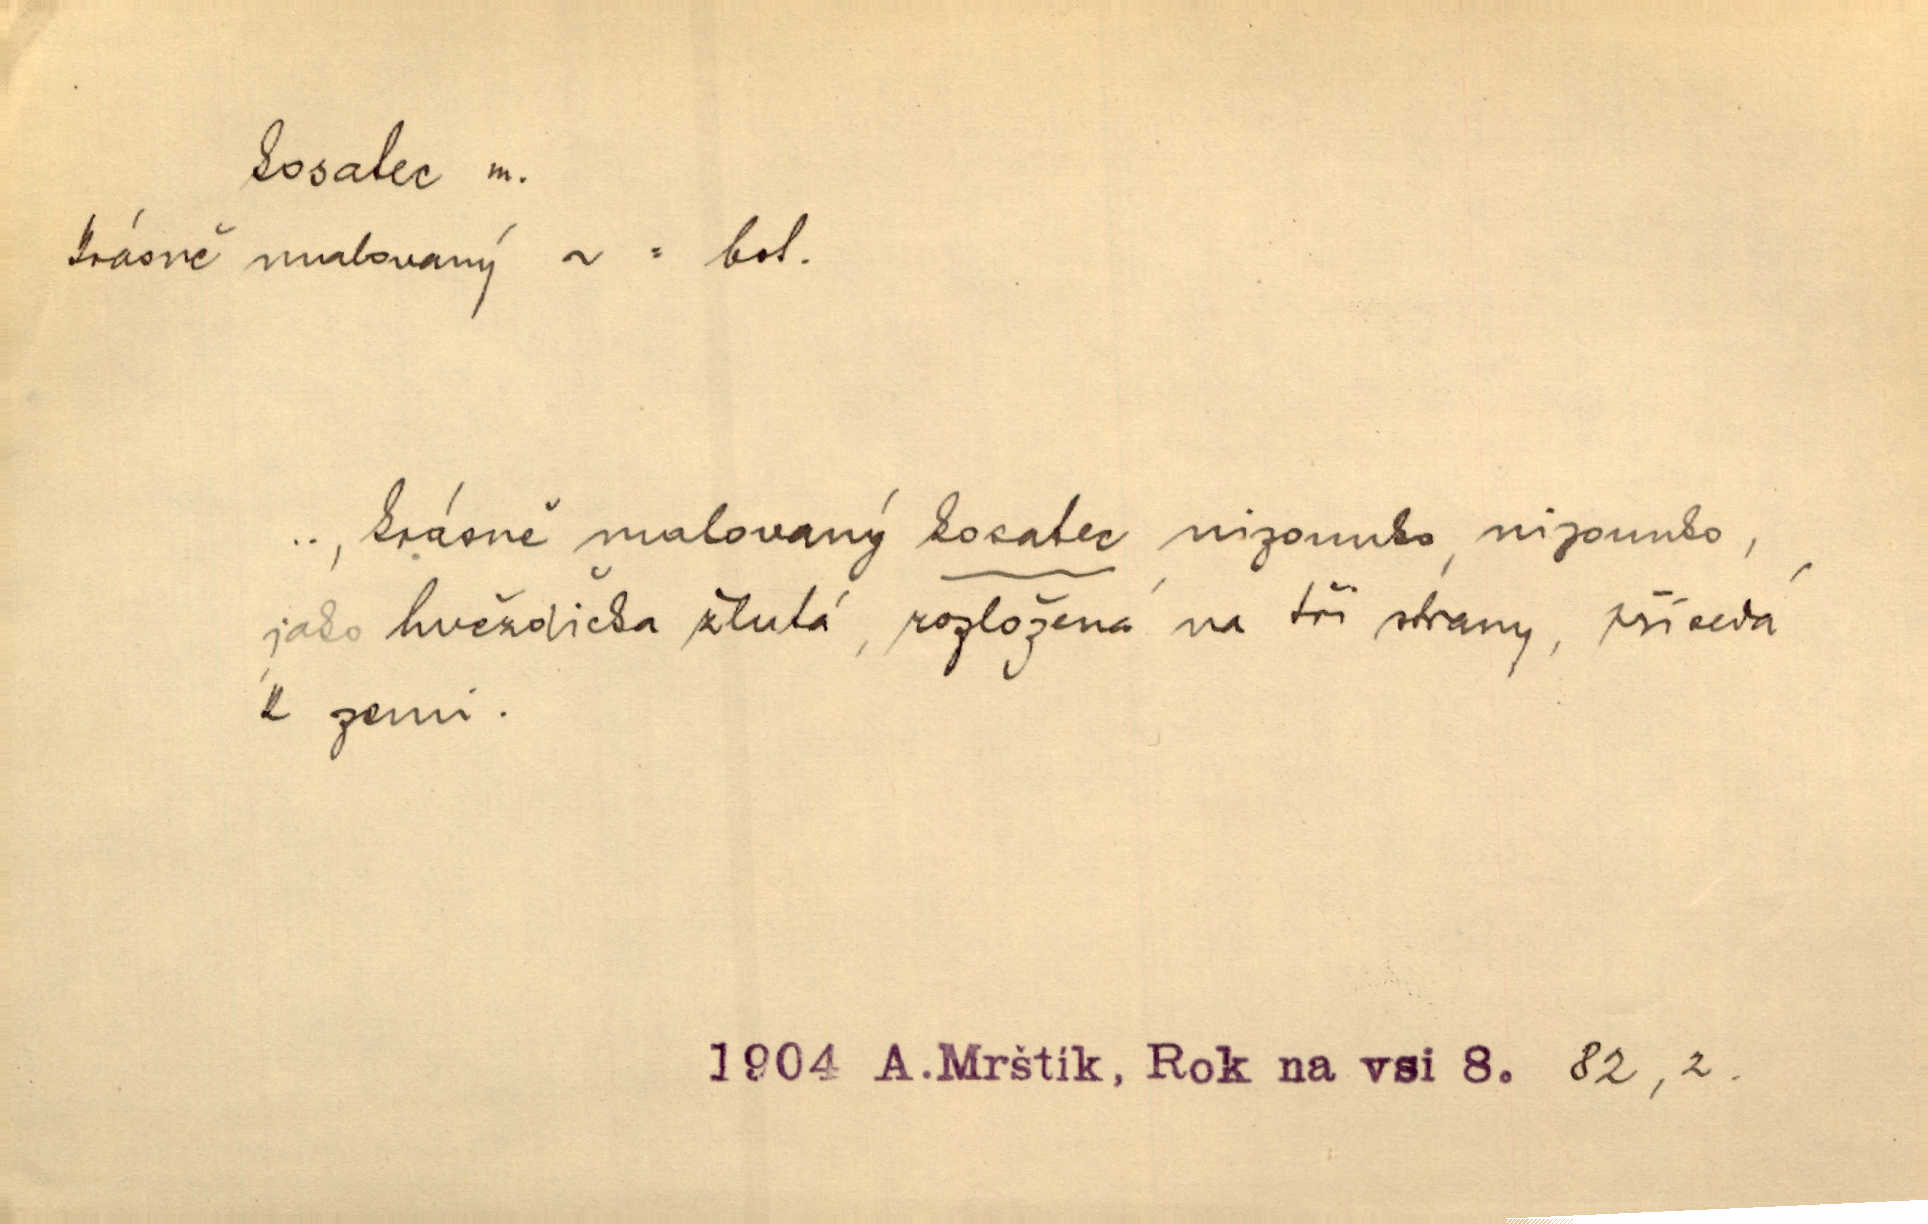 kosatec m.
krásně malovaný ~ = bot.
.., krásně malovaný kosatec nizounko, nizounko,
jako hvězdička žlutá, rozložená na tři strany, přisedá
k zemi.
1904 A.Mrštík, Rok na vsi 8. 82, 2.